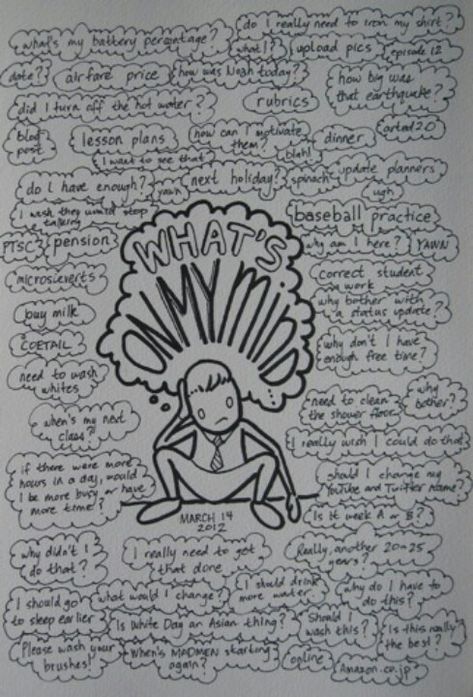 what's my battery percentage?
do I really need to iron my shirt?
what!?
upload pics
episode 12
date?
airfare price
how was Noah today?
how big was
that earthquake?
did I turn off the hot water?
rubrics
blog
post
lesson plans
how can I motivate
them?
dinner
I want to see that
blah!
do I have enough?
yawn
next holiday?
spinach
update planners
ugh
I wish they would stop
talking
baseball practice
PTSC
pension
WHAT'S
ON MY MIND
why am I here?
YAWN
microsieverts
correct student
work
buy milk
why bother with
a status update?
COETAIL
why don't I have
enough free time?
need to wash
whites
need to clean
the shower floor
why
bother?
when's my next
class?
I really wish I could do that
if there were more
hours in a day, would
I be more busy or have
more time?
should I change my
YouTube and Twitter name?
MARCH 14
2012
Is it week A or B?
why didn't I
do that?
I really need to get
that done
Really, another 20-25
years?
what would I change?
I should drink
more water
why do I have to
do this?
I should go
to sleep earlier
Is White Day an Asian thing?
Should I
wash this?
Is this really
the best?
Please wash your
brushes!
When's MADMEN starting
again?
online
Amazon.co.jp